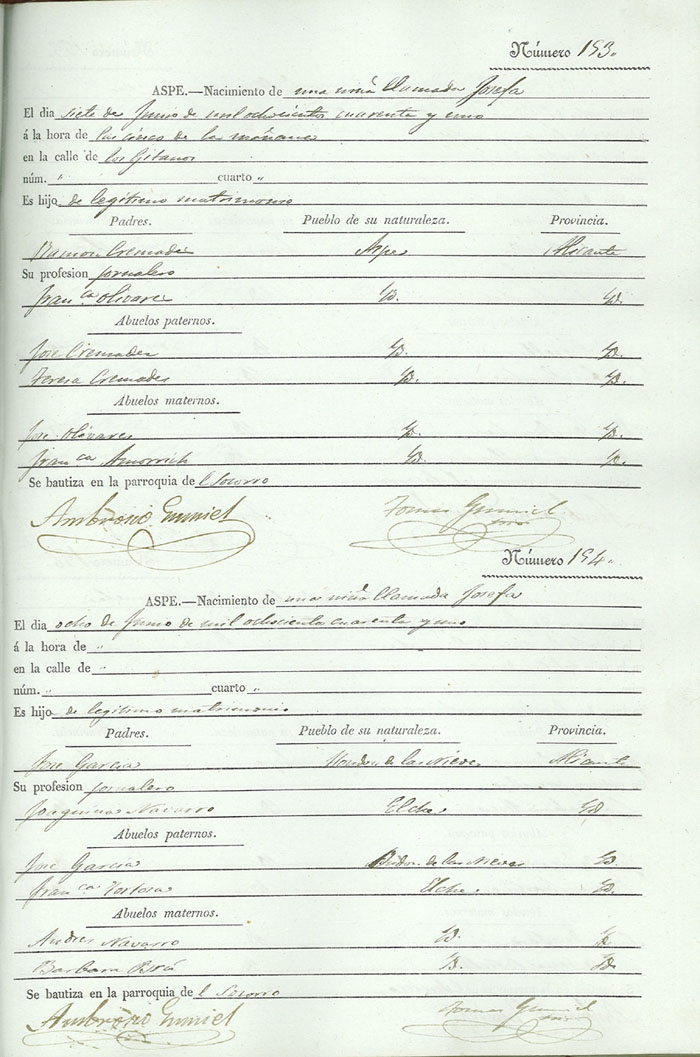 Número 193.
ASPE.—Nacimiento de una niña llamada Josefa
El dia siete de Junio de mil ochocientos cuarenta y uno
á la hora de las cinco de la mañana
en la calle de los Gitanos
núm. " cuarto "
Es hijo de legitimo matrimonio
Padres. Pueblo de su naturaleza. Provincia.
Ramon Cremades Aspe Alicante
Su profesion jornalero
Fran.ca Olivares Yd. Yd.
Abuelos paternos.
Jose Cremades Yd. Yd.
Teresa Cremades Yd. Yd.
Abuelos maternos.
Jose Olivares Yd. Yd.
Fran.ca Yd. Yd.
Se bautiza en la parroquia de l Socorro
Ambrosio
Tomas
Número 194.
ASPE.—Nacimiento de una niña llamada Josefa
El dia ocho de Junio de mil ochocientos cuarenta y uno
á la hora de "
en la calle de "
núm. " cuarto "
Es hijo de legitimo matrimonio
Padres. Pueblo de su naturaleza. Provincia.
Jose Garcia Hondon de las Nieves Alicante
Su profesion jornalero
Joaquina Navarro Elche Yd
Abuelos paternos.
Jose Garcia Hondon de las Nieves Yd.
Fran.ca Tortosa Elche Yd.
Abuelos maternos.
Andres Navarro Yd. Yd.
Barbara Yd. Yd.
Se bautiza en la parroquia de l Socorro
Ambrosio
Tomas